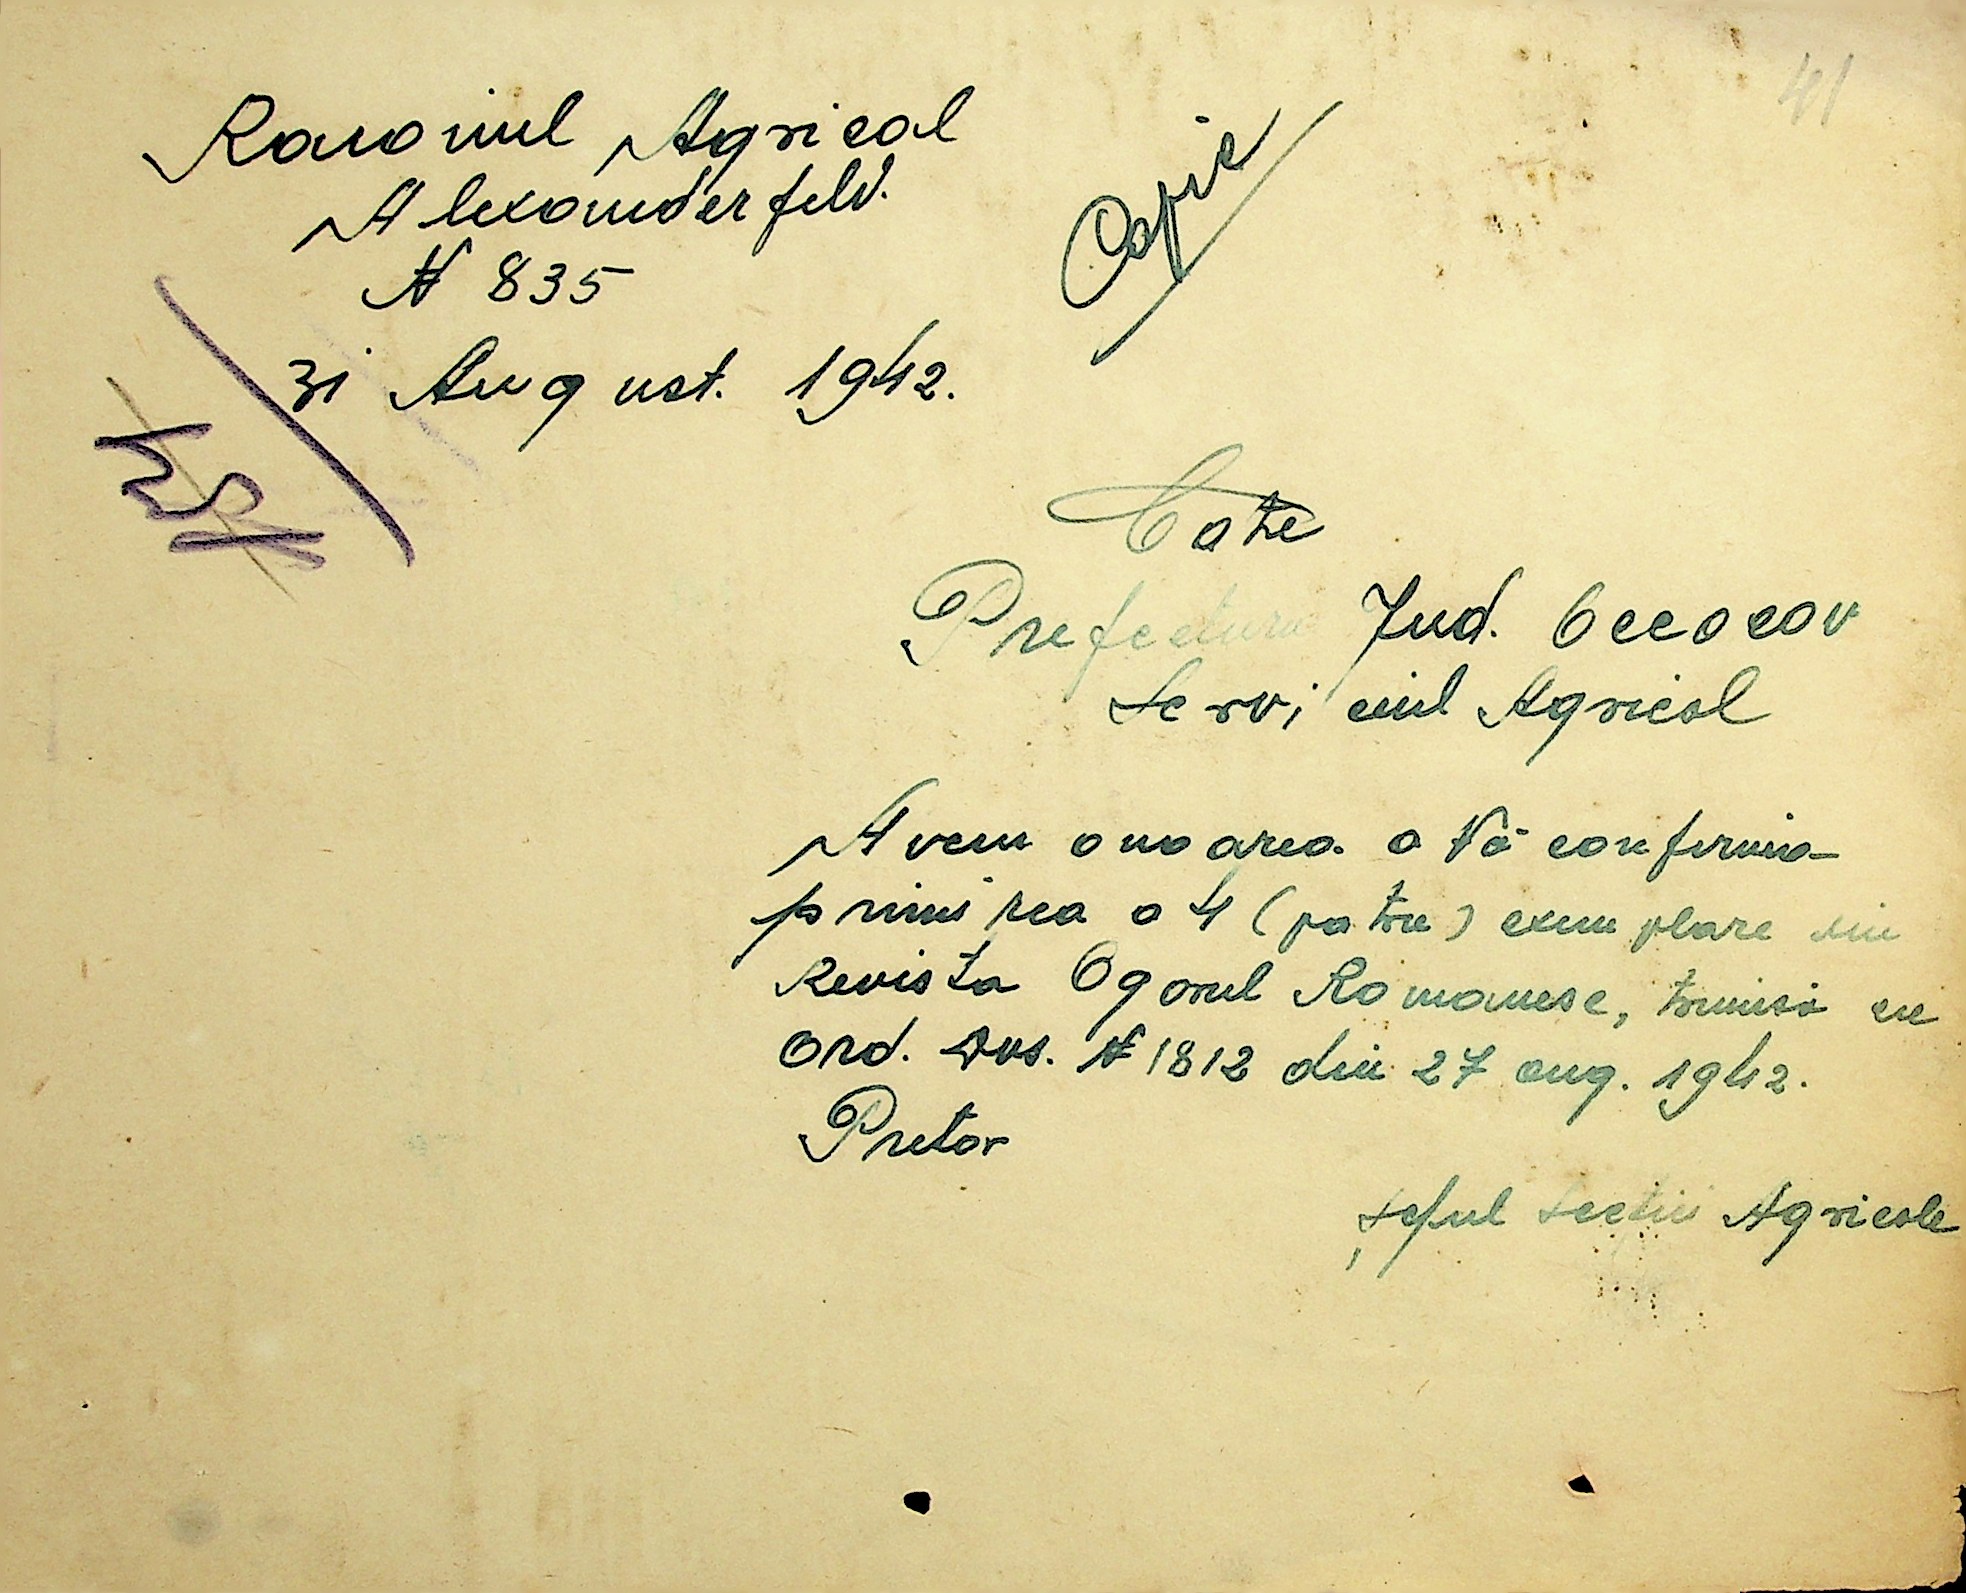 41
Raionul Agricol
Alexanderfeld.
N 835
31 August. 1942.
Copie
Catre
Prefectura Jud. Oceacov
Serviciul Agricol
Avem onoarea a Vă confirma
primirea a 4 (patru) exemplare din
Revista Ogorul Romanesc, trimisă cu
Ord. Dvs. N 1812 din 27 aug. 1942.
Pretor
Șeful Sectiei Agricole